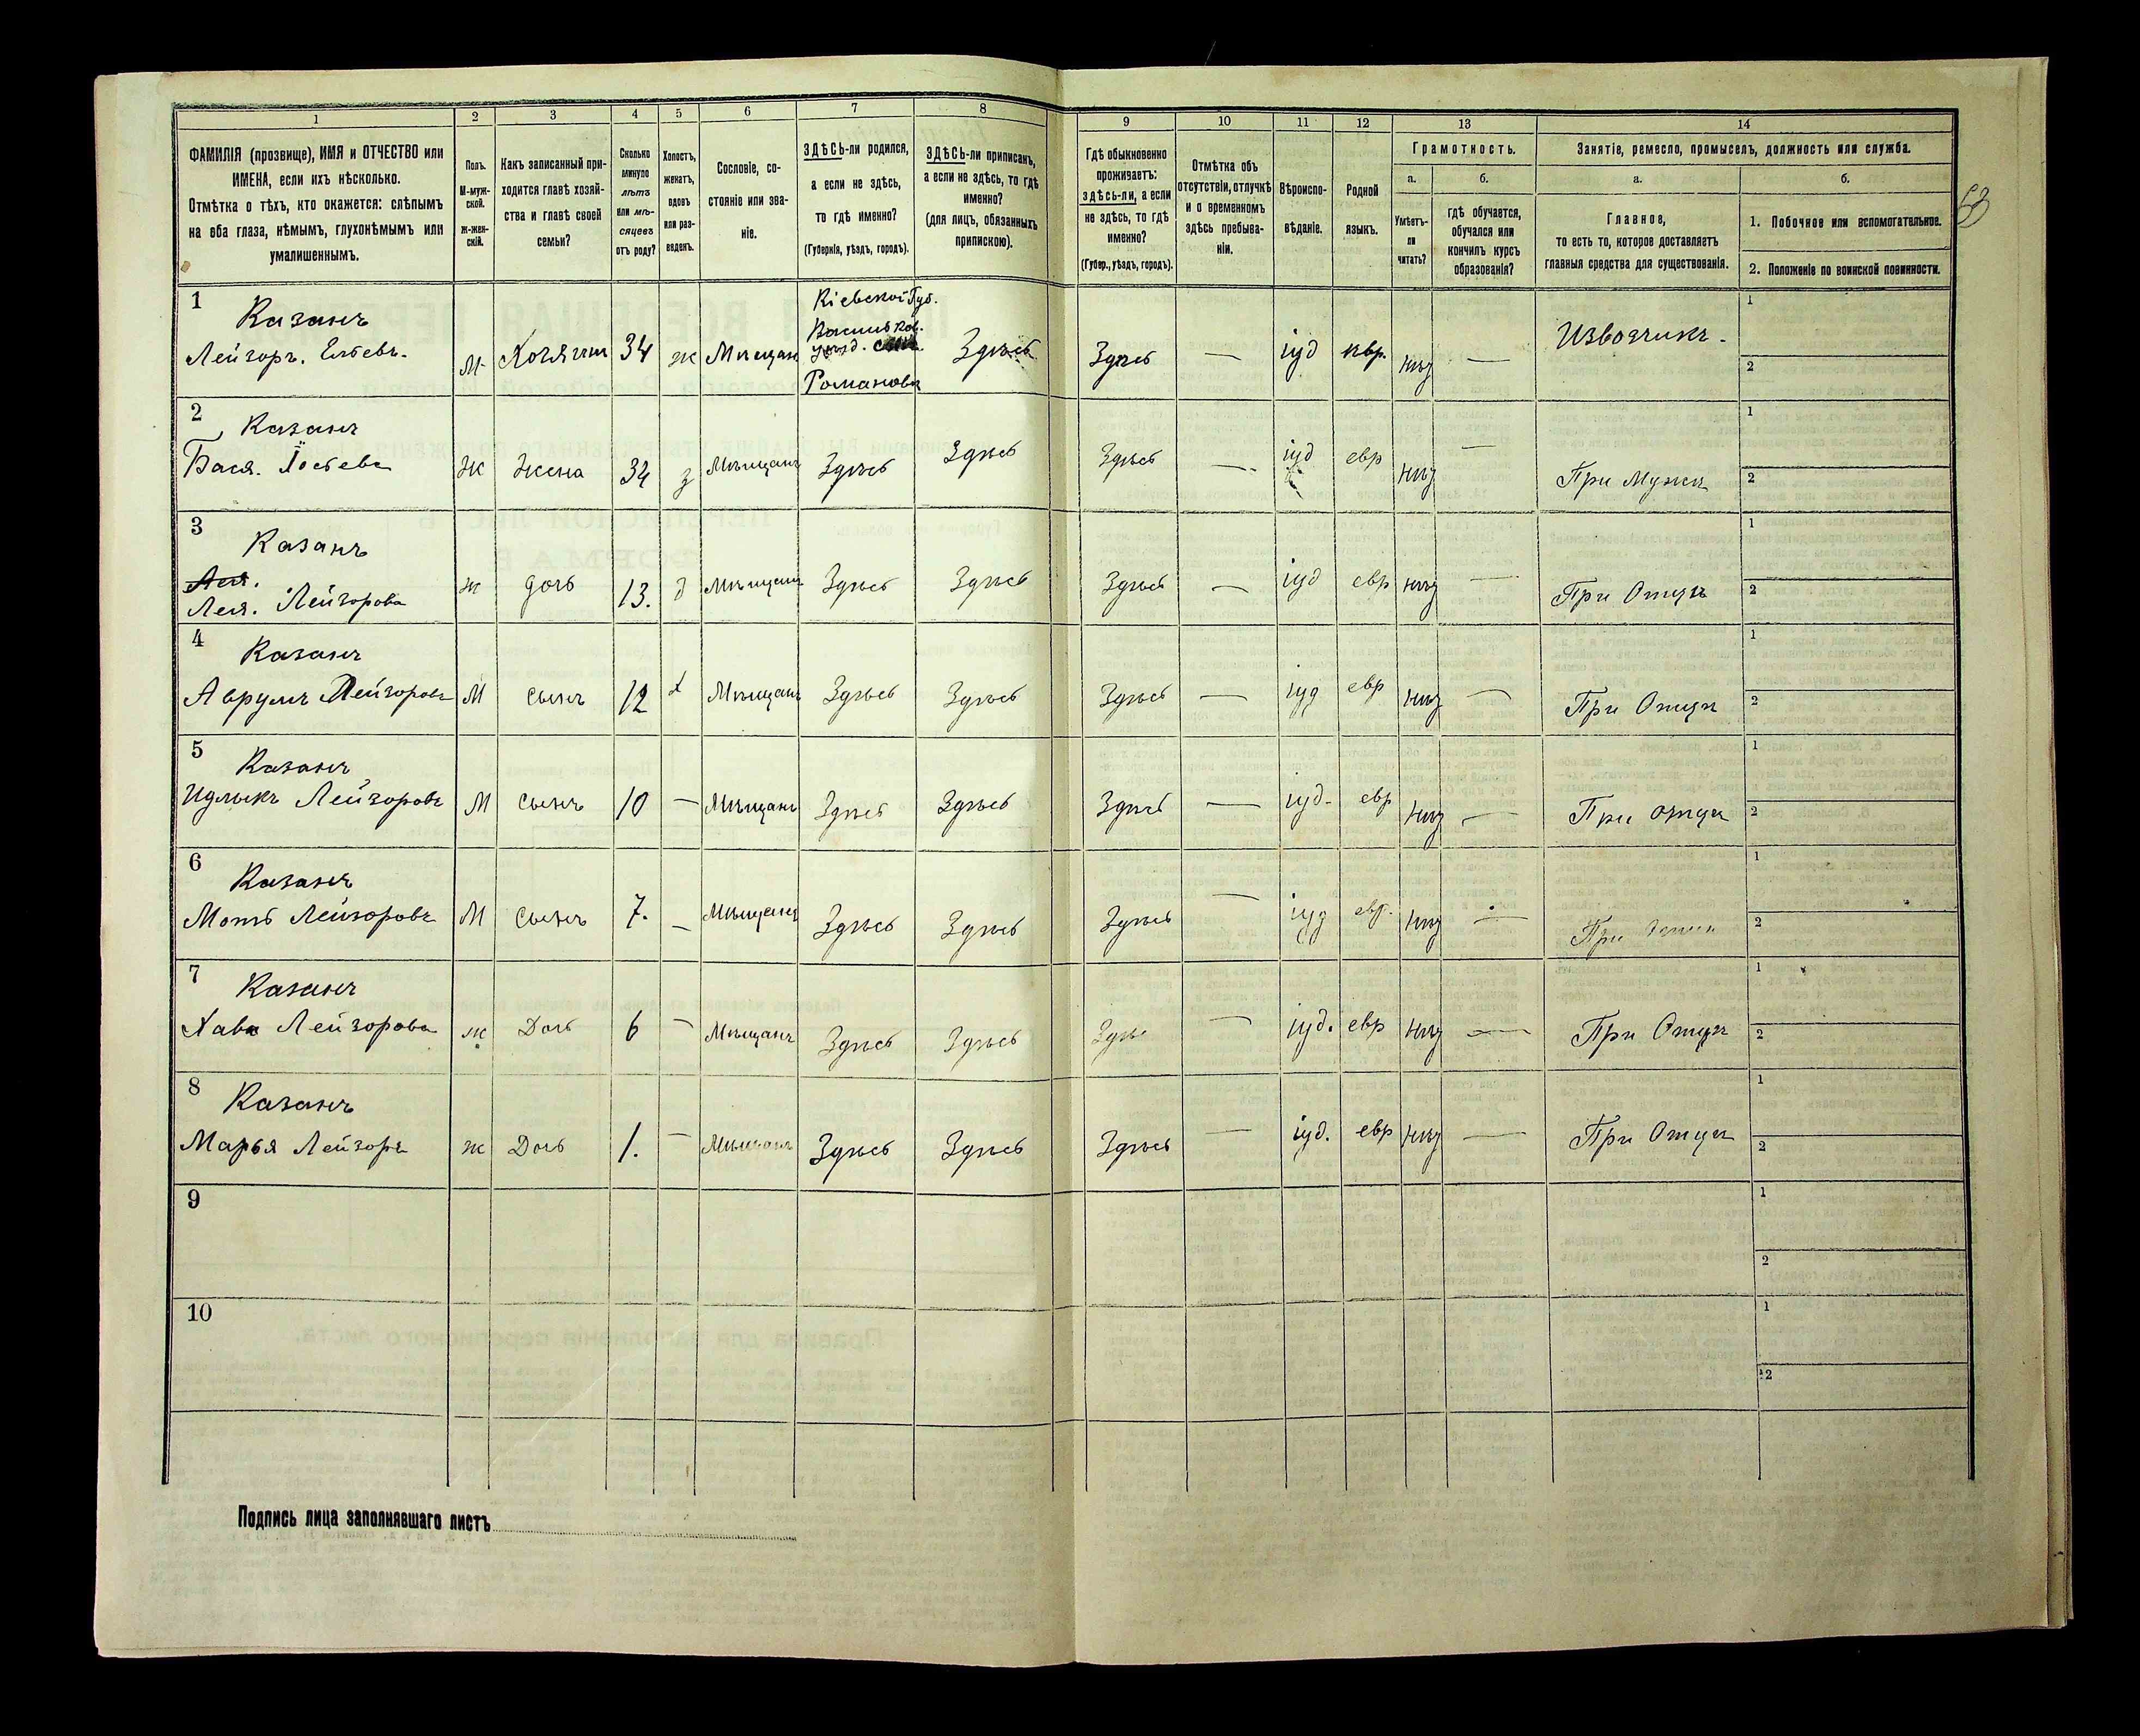 1 2 3 4 5 6 7 8 9 10 11 12 13 14
ФАМИЛІЯ (прозвище), ИМЯ и ОТЧЕСТВО или
ИМЕНА, если ихъ нѣсколько.
Отмѣтка о тѣхъ, кто окажется: слѣпымъ
на оба глаза, нѣмымъ, глухонѣмымъ или
умалишеннымъ.
Полъ.
М-муж-
ской.
Ж-жен-
скій.
Какъ записанный при-
ходится главѣ хозяй-
ства и главѣ своей
семьи?
Сколько
минуло
лѣтъ
или мѣ-
сяцевъ
отъ роду?
Холостъ,
женатъ,
вдовъ
или раз-
веденъ.
Сословіе, со-
стояніе или зва-
ніе.
ЗДѢСЬ-ли родился,
а если не здѣсь,
то гдѣ именно?
(Губернія, уѣздъ, городъ).
ЗДѢСЬ-ли приписанъ,
а если не здѣсь, то гдѣ
именно?
(для лицъ, обязанныхъ
припискою).
Гдѣ обыкновенно
проживаетъ:
здѣсь-ли, а если
не здѣсь, то гдѣ
именно?
(Губер., уѣздъ, городъ).
Отмѣтка объ
отсутствіи, отлучкѣ
и о временномъ
здѣсь пребыва-
ніи.
Вѣроиспо-
вѣданіе.
Родной
языкъ.
Грамотность.
а.
Умѣетъ-
ли
читать?
б.
гдѣ обучается,
обучался или
кончилъ курсъ
образованія?
Занятіе, ремесло, промыселъ, должность или служба.
а.
Главное,
то есть то, которое доставляетъ
главныя средства для существованія.
б.
1. Побочное или вспомогательное.
2. Положеніе по воинской повинности.
1
Казанъ
Лейзоръ.
М. Хозяин 34 ж Мѣщан
Кіевской Губ.
Васильков.
уѣзд.
Романовка
Здѣсь Здѣсь — іуд евр. нѣт — Извозчикъ.
1
2
2
Казанъ
Бася.
Ж Жена 34 з Мѣщанъ Здѣсь Здѣсь Здѣсь — іуд евр нѣт — При Мужѣ
1
2
3
Казанъ
Лея.
Лея. Лейзорова
ж дочь 13. д Мѣщанъ Здѣсь Здѣсь Здѣсь — іуд евр нѣт — При Отцѣ
1
2
4
Казанъ
Аврумъ Лейзоровъ
М сынъ 12 х Мѣщанъ Здѣсь Здѣсь Здѣсь — іуд евр нѣт — При Отцѣ
1
2
5
Казанъ
Идлыкъ Лейзоровъ
М сынъ 10 — Мѣщанъ Здѣсь Здѣсь Здѣсь — іуд. евр нѣт — При отцѣ
1
2
6
Казанъ
Мотъ Лейзоровъ
М сынъ 7. — Мѣщанъ Здѣсь Здѣсь Здѣсь — іуд евр. нѣт — При
1
2
7
Казанъ
Хава Лейзорова
ж Дочь 6 — Мѣщанъ Здѣсь Здѣсь Здѣсь — іуд. евр нѣт — При Отцѣ
1
2
8
Казанъ
Марья Лейзора
ж Дочь 1. — Мѣщанъ Здѣсь Здѣсь Здѣсь — іуд. евр нѣт — При Отцѣ
1
2
9
1
2
10
1
2
Подпись лица заполнявшаго листъ